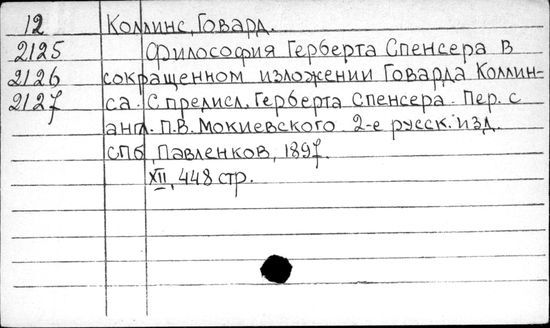 12 Коллинс, Говард.
2125 Философия Герберта Спенсера в
2126 сокращенном изложении Говарда Коллин=
2127 са. С предисл. Герберта Спенсера. Пер. с
англ. П.В. Мокиевского. 2-е русск. изд.
СПб, Павленков, 1897.
XII, 448 стр.